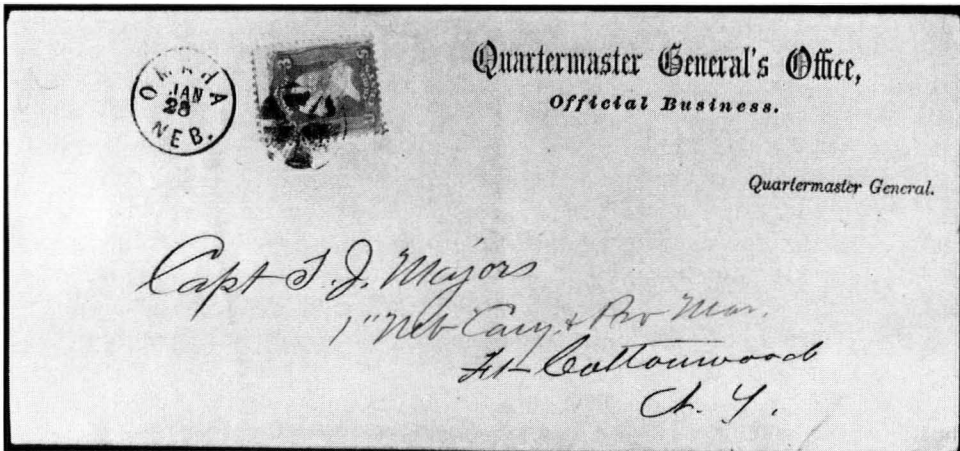 OMAHA
JAN
28
NEB.
3
Quartermaster General's Office,
Official Business.
Quartermaster General.
Capt T. J. Majors
1" Neb Cavy & Pro Mar.
Ft Cottonwood
N. T.